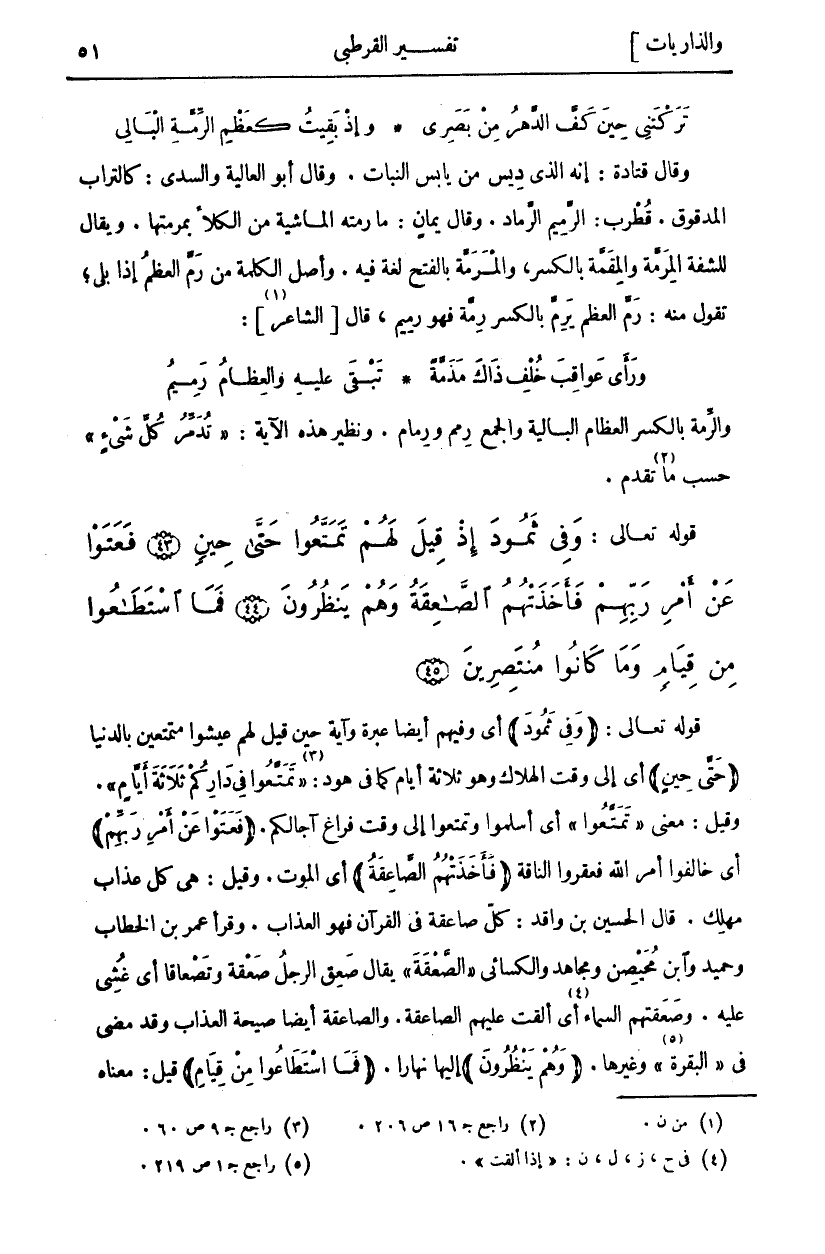 والذاريات ] تفســير القرطبى ٥١
تَرَكْتَنِي حِينَ كَفَّ الدَّهرُ مِنْ بَصَرِى * وإذْ بَقِيتُ كعَظْمِ الرِّمَّةِ الْبَالِى
وقال قتادة : إنه الذى دِيس من يابس النبات . وقال أبو العالية والسدى : كالتراب
المدقوق . قُطْرب : الرَّمِيم الرَّماد . وقال يمان : ما رمته المـاشية من الكلأ بمرمتها . ويقال
للشفة المِرَمَّة والمِقَمَّة بالكسر، والْمَرَمَّة بالفتح لغة فيه . وأصل الكلمة من رَمَّ العظمُ إذا بلى؛
تقول منه : رَمَّ العظم يَرِمّ بالكسر رِمَّة فهو رميم ، قال [ الشاعر (١) ] :
ورَأَى عَواقِبَ خُلْفِ ذَاكَ مَذمَّةً * تَبْـقَى عليـهِ والعِظـامُ رَمِـيمُ
والرِّمة بالكسر العظام البـالية والجمع رِمم ورِمام . ونظير هذه الآية : « تُدَمِّرُ كُلَّ شَىْءٍ »
حسب ما (٢) تقدم .
قوله تعـالى : وَفِى ثَمُـودَ إِذْ قِيلَ لَهُـمْ تَمَتَّعُوا حَتَّىٰ حِينٍ ﴿٤٣﴾ فَعَتَوْا
عَنْ أَمْرِ رَبِّهِـمْ فَأَخَذَتْهُمُ ٱلصَّـٰعِقَةُ وَهُمْ يَنظُرُونَ ﴿٤٤﴾ فَمَا ٱسْتَطَـٰعُوا
مِن قِيَامٍ وَمَا كَانُوا مُنتَصِرِينَ ﴿٤٥﴾
قوله تعـالى : ﴿وَفِى ثَمُودَ﴾ أى وفيهم أيضا عبرة وآية حين قيل لهم عيشوا متمتعين بالدنيا
﴿حَتَّى حِينٍ﴾ أى إلى وقت الهلاك وهو ثلاثة أيام كما فى هود : (٣) « تَمَتَّعُوا فِى دَارِكُمْ ثَلَاثَةَ أَيَّامٍ» .
وقيل : معنى « تَمَتَّعُوا » أى أسلموا وتمتعوا إلى وقت فراغ آجالكم . ﴿فَعَتَوْا عَنْ أَمْرِ رَبِّهِمْ﴾
أى خالفوا أمر الله فعقروا الناقة ﴿فَأَخَذَتْهُمُ الصَّاعِقَةُ﴾ أى الموت . وقيل : هى كل عذاب
مهلك . قال الحسين بن واقد : كلّ صاعقة فى القرآن فهو العذاب . وقرأ عمر بن الخطاب
وحميد وآبن مُحَيْصِن ومجاهد والكسائى «الصَّعْقَةَ» يقال صَعِق الرجلُ صَعْقة وتَصْعاقا أى غُشِى
عليه . وصَعَقتهم السماء (٤) أى ألقت عليهم الصاعقة . والصاعقة أيضا صيحة العذاب وقد مضى
فى « البقرة (٥) » وغيرها . ﴿ وَهُمْ يَنْظُرُونَ ﴾ إليها نهارا . ﴿ فَمَـا اسْتَطَاعُوا مِنْ قِيَامٍ ﴾ قيل : معناه
(١) من ن . (٢) راجع جـ ١٦ ص ٢٠٦ . (٣) راجع جـ ٩ ص ٦٠ .
(٤) فى ح ، ز ، ل ، ن : « إذا ألقت » . (٥) راجع جـ ١ ص ٢١٩ .